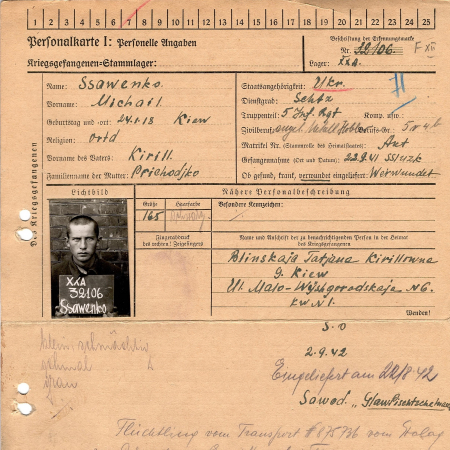 1 2 3 4 5 6 7 8 9 10 11 12 13 14 15 16 17 18 19 20 21 22 23 24 25
Personalkarte I: Personelle Angaben
Beschriftung der Erkennungsmarke
Nr. 32106. F XII
Kriegsgefangenen-Stammlager:
Lager: XXA.
Des Kriegsgefangenen
Name: Ssawenko.
Vorname: Michail.
Geburtstag und -ort: 24.1.18 Kiew
Religion: ortd
Vorname des Vaters: Kirill.
Familienname der Mutter: Prichodjko
Staatsangehörigkeit: Ukr.
Dienstgrad: Schtz
Truppenteil: 5 Inf. Rgt Komp. usw.:
Zivilberuf:
Matrikel Nr. (Stammrolle des Heimatstaates):
Gefangennahme (Ort und Datum): 22.9.41
Ob gesund, krank, verwundet eingeliefert: Verwundet
Lichtbild
XXA
32106
Ssawenko
Nähere Personalbeschreibung
Größe
Haarfarbe
Besondere Kennzeichen:
165
Fingerabdruck
des rechten! Zeigefingers
Name und Anschrift der zu benachrichtigenden Person in der Heimat
des Kriegsgefangenen
Blinskaja Tatjana Kirillowna
g. Kiew
Ul. Malo-Wyshgorodskaja N6.
kw N1.
Wenden!
S. O
2.9.42
Eingeliefert am 22/8.42
Sawod.
Flüchtling vom Transport vom Stalag